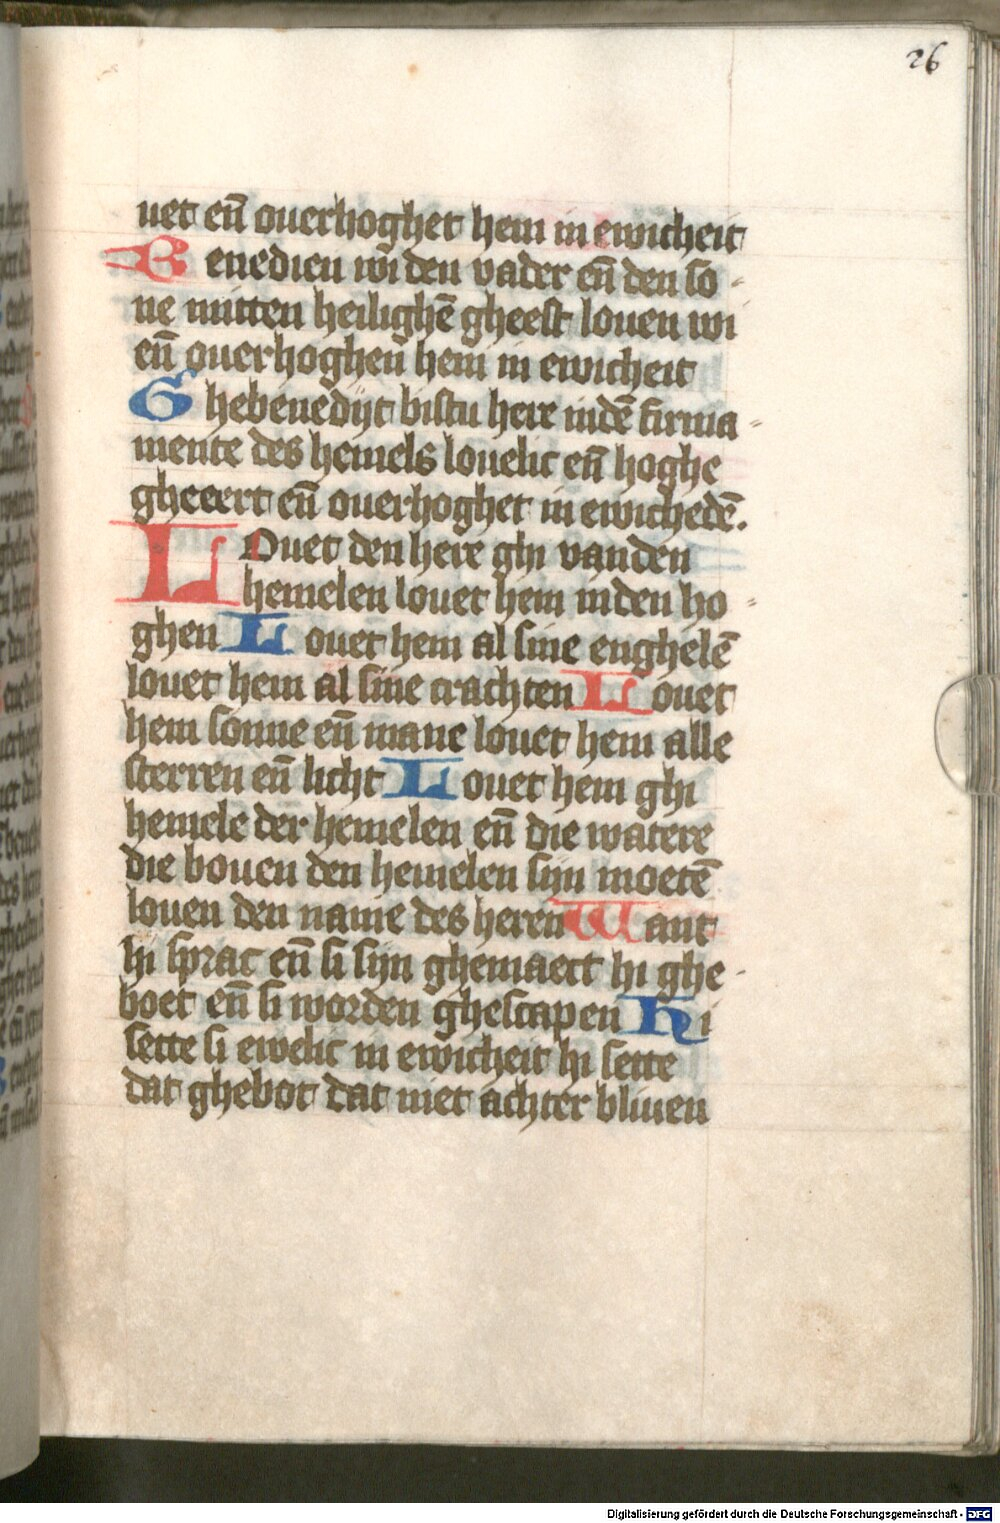 26
uet eñ ouerhoghet hem in ewicheit
Benedien wi den vader eñ den so-
ne mitten heilighē gheest louen wi
eñ ouerhoghen hem in ewicheit
Ghebenedijt bistu here indē firma-
mente des hemels louelic eñ hoghe
gheeert eñ ouerhoghet in ewichedē.
LOuet den here ghi vanden
hemelen louet hem inden ho-
ghen Louet hem al sine enghelē
louet hem al sine crachten Louet
hem sonne eñ mane louet hem alle
sterren eñ licht Louet hem ghi
hemele der hemelen eñ die watere
die bouen den hemelen sijn moetē
louen den name des heren Want
hi sprac eñ si sijn ghemaect hi ghe-
boet eñ si worden ghescapen Hi
sette si ewelic in ewicheit hi sette
dat ghebot dat niet achter bliuen
Digitalisierung gefördert durch die Deutsche Forschungsgemeinschaft - DFG